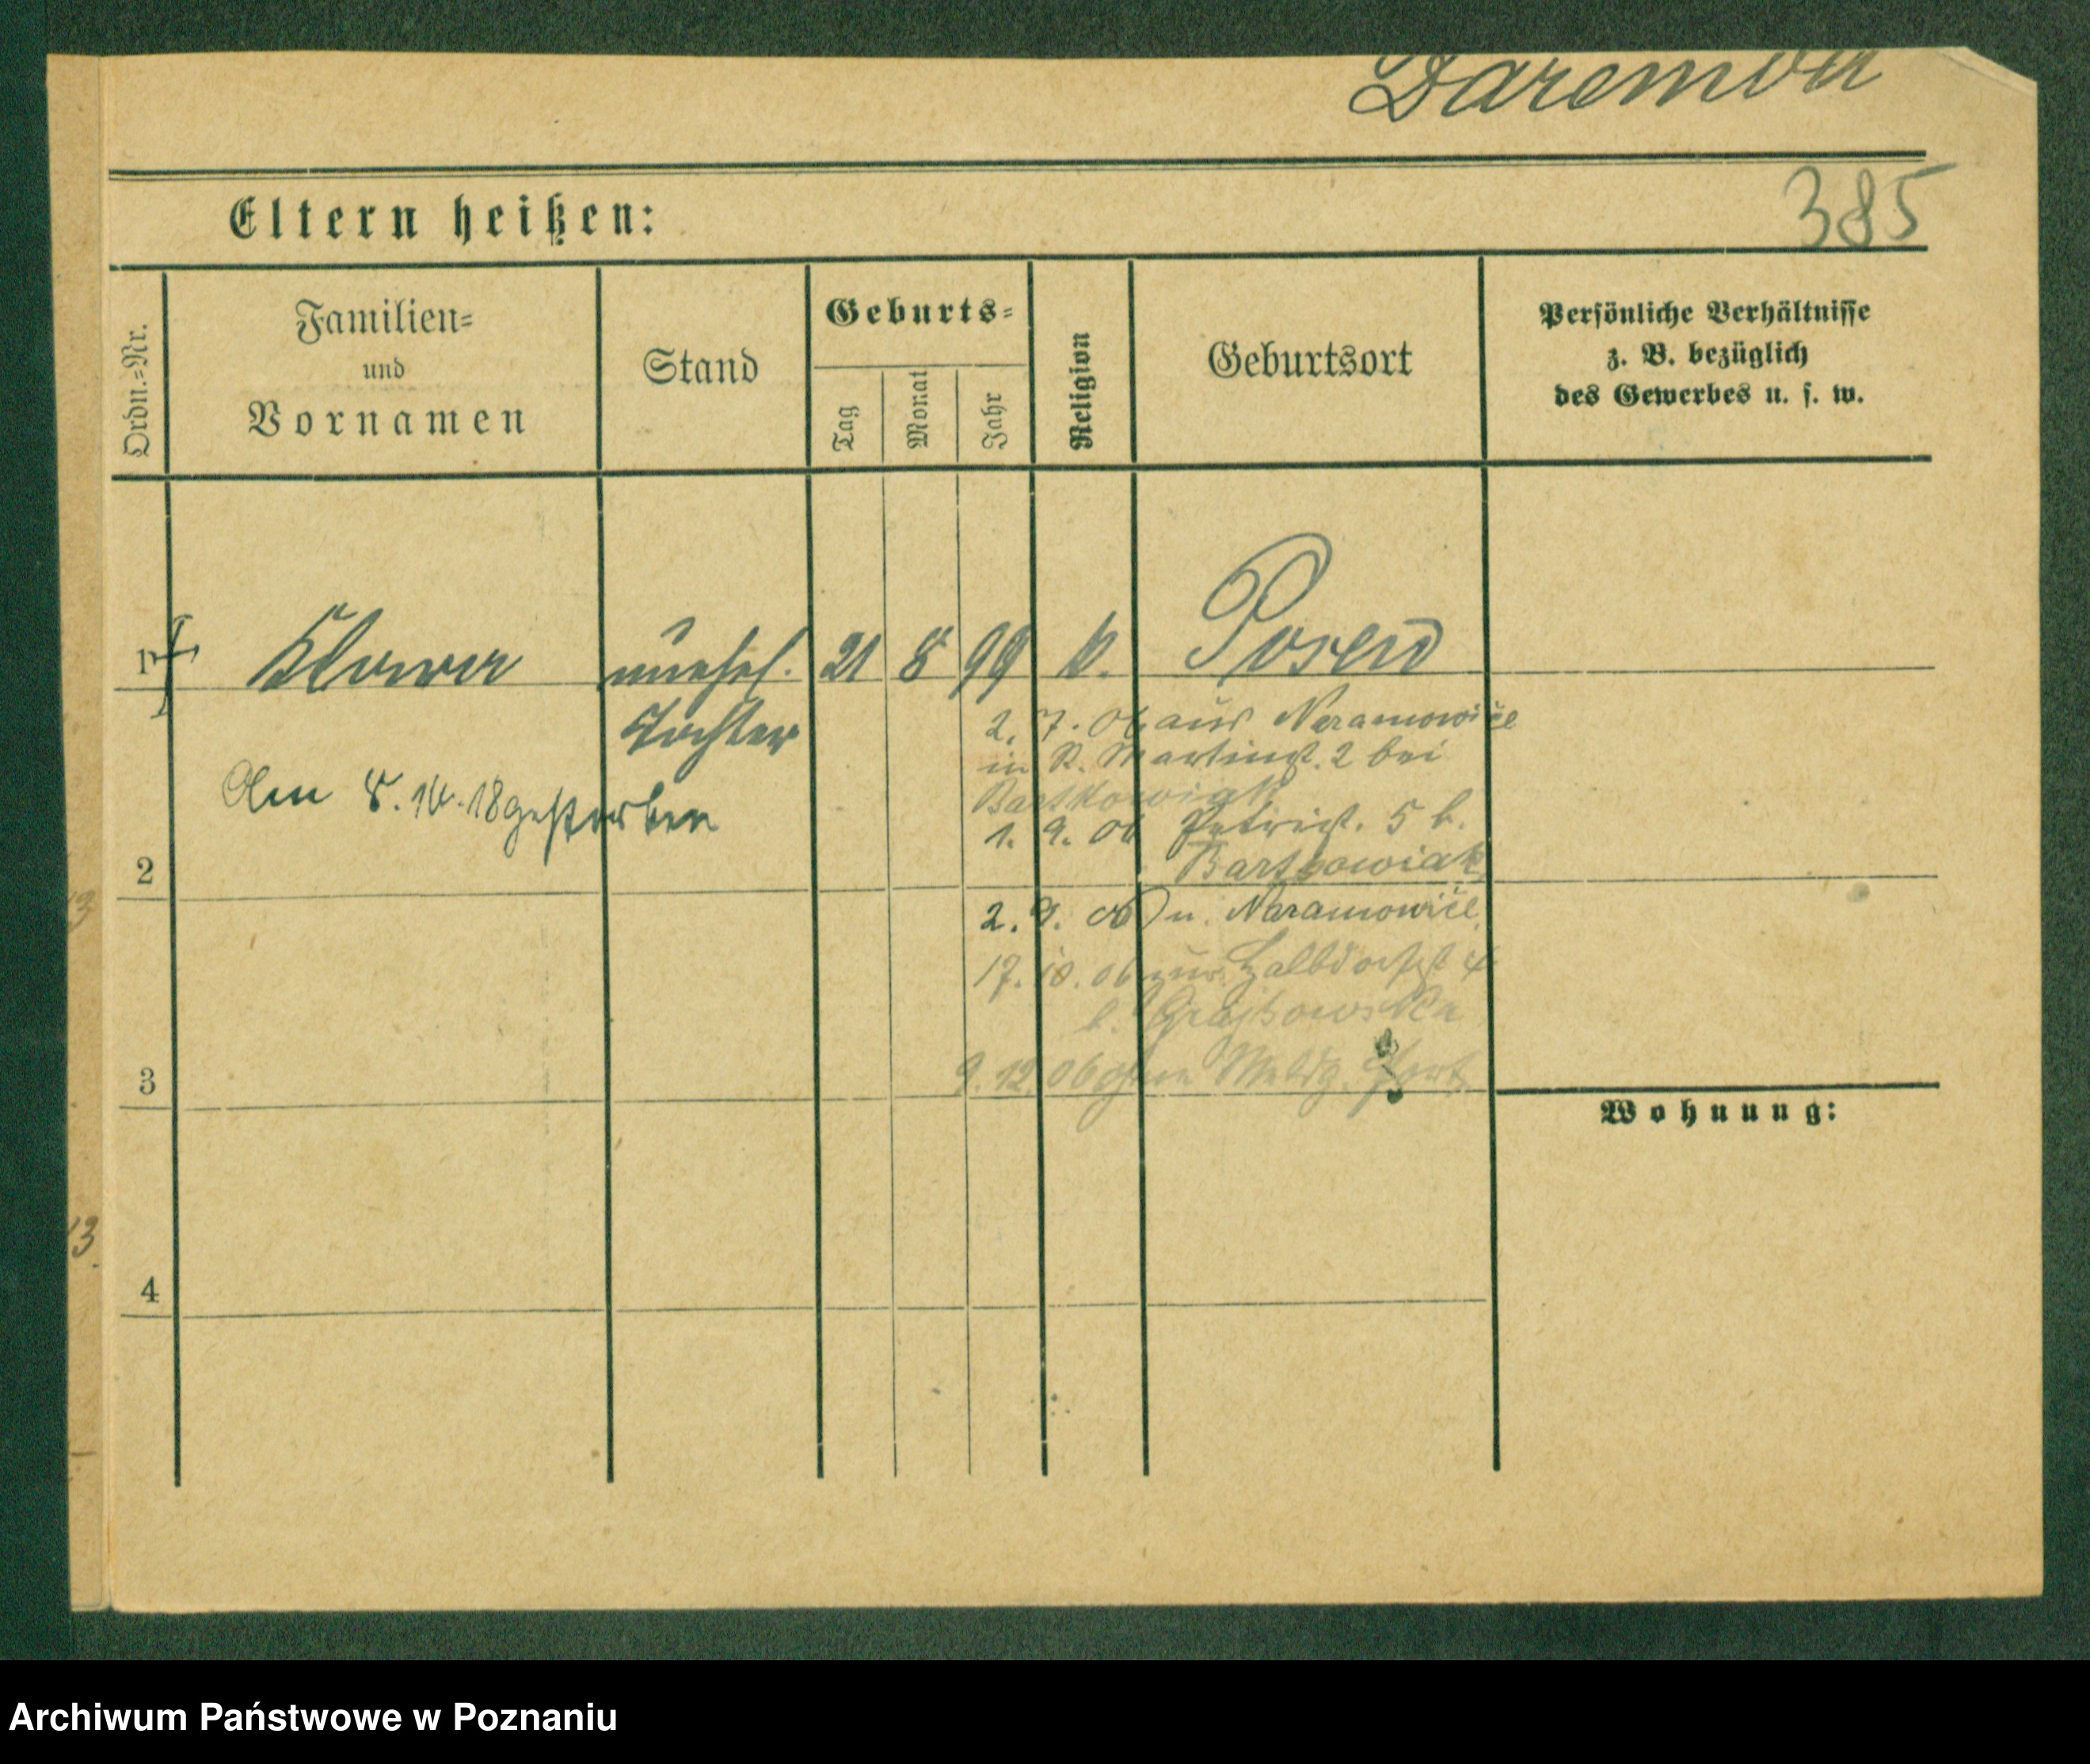 Daremba
385
Eltern heißen:
Ordn.=Nr.
Familien=
und
Vornamen
Stand
Geburts=
Tag
Monat
Jahr
Religion
Geburtsort
Persönliche Verhältnisse
z. B. bezüglich
des Gewerbes u. s. w.
1 unehel. 21 8 99 k. Posen
Tochter
2. 7. 06 aus Naramowice
in St. Martinst. 2 bei
Bartkowiak
Am 8. 10. 18 gestorben
1. 9. 06 Petrist. 5 b.
Bartkowiak
2
2. 9. 06 n. Naramowice
17. 10. 06 zur. Halbdorfst
b.
9. 12. 06 ohne Meldg. fort
3
Wohnung:
4
13
13.
Archiwum Państwowe w Poznaniu